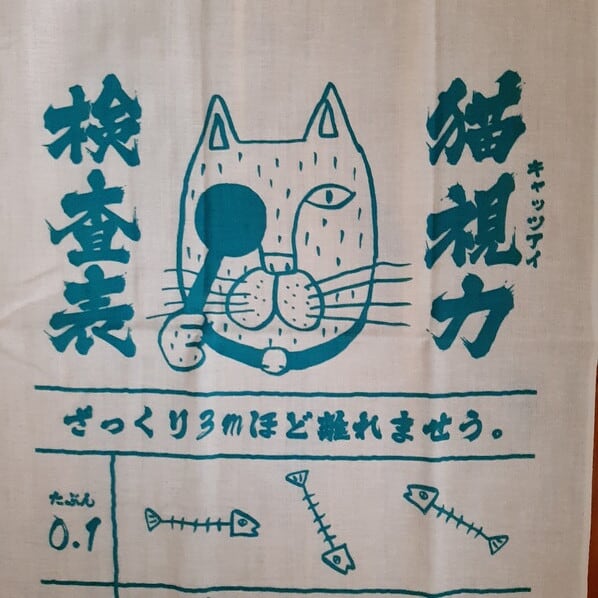 猫視力
キャッツアイ
検査表
ざっくり3mほど離れませう。
たぶん
0.1